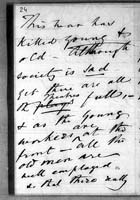 24
This war has
killed young &
old – Although
society is sad
yet there are all
the plays full –
& as the young
workers not the
front – all the
old men are
well employed
& that there really